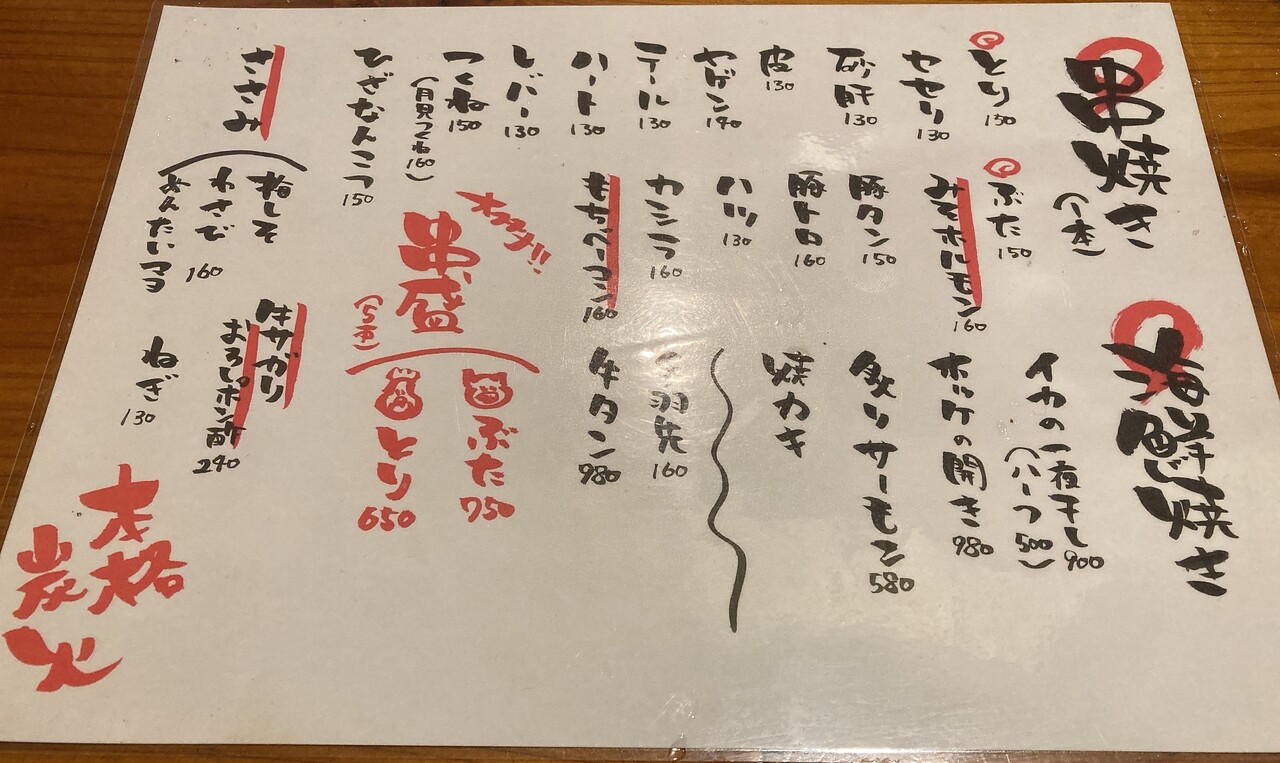 串焼き
(1本)
とり
130
セセリ
130
砂肝
130
皮
130
ヤゲン
140
テール
130
ハート
130
レバー
130
つくね
150
(月見つくね
160)
ひざなんこつ
150
ささみ
梅しそ
わさび
めんたいマヨ
160
ぶた
150
みそホルモン
160
豚タン
150
豚トロ
160
ハツ
130
カシラ
160
もちベーコン
160
オススメ!!
串盛
(5本)
ぶた
750
とり
650
牛サガリ
おろしポン酢
240
ねぎ
130
海鮮焼き
イカの一夜干し
900
(ハーフ
500)
ホッケの開き
980
炙りサーモン
580
焼カキ
手羽先
160
牛タン
980
本格
炭火